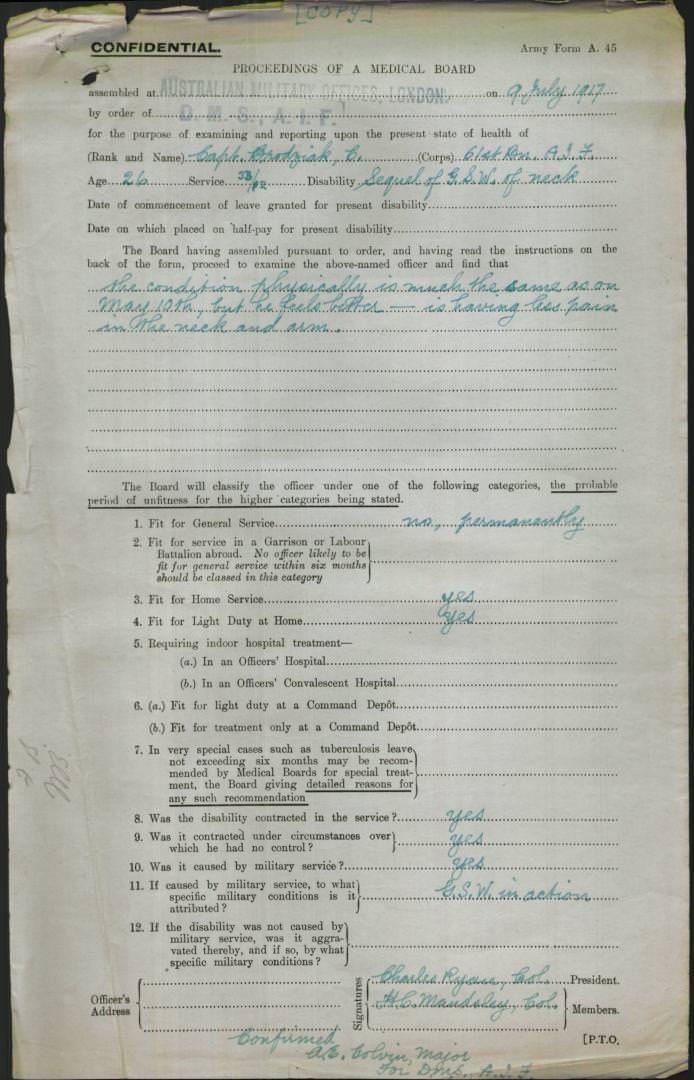 [COPY]
CONFIDENTIAL. Army Form A. 45
PROCEEDINGS OF A MEDICAL BOARD
assembled at AUSTRALIAN MILITARY OFFICES, LONDON. on 9 July 1917
by order of D. M. S., A. I. F.
for the purpose of examining and reporting upon the present state of health of
(Rank and Name) Capt. Brodziak, C. (Corps) 61st Bn. A.I.F.
Age 26 Service Disability Sequel of G.S.W. of neck
Date of commencement of leave granted for present disability
Date on which placed on half-pay for present disability
The Board having assembled pursuant to order, and having read the instructions on the
back of the form, proceed to examine the above-named officer and find that
the condition physically is much the same as on
May 19th, but he feels better — is having less pain
in the neck and arm.
The Board will classify the officer under one of the following categories, the probable
period of unfitness for the higher categories being stated.
1. Fit for General Service no, permanantly
2. Fit for service in a Garrison or Labour
Battalion abroad. No officer likely to be
fit for general service within six months
should be classed in this category
3. Fit for Home Service yes
4. Fit for Light Duty at Home yes
5. Requiring indoor hospital treatment—
(a.) In an Officers' Hospital
(b.) In an Officers' Convalescent Hospital
6. (a.) Fit for light duty at a Command Depôt
(b.) Fit for treatment only at a Command Depôt
7. In very special cases such as tuberculosis leave
not exceeding six months may be recom-
mended by Medical Boards for special treat-
ment, the Board giving detailed reasons for
any such recommendation
8. Was the disability contracted in the service? yes
9. Was it contracted under circumstances over
which he had no control? yes
10. Was it caused by military service? yes
11. If caused by military service, to what
specific military conditions is it
attributed? G.S.W. in action
12. If the disability was not caused by
military service, was it aggra-
vated thereby, and if so, by what
specific military conditions?
Officer's
Address
Signatures
Charles Ryan, Col. President.
H.C. Maudsley, Col. Members.
[P.T.O.
Confirmed
A.E. Colvin, Major
For D.M.S. A.I.F.